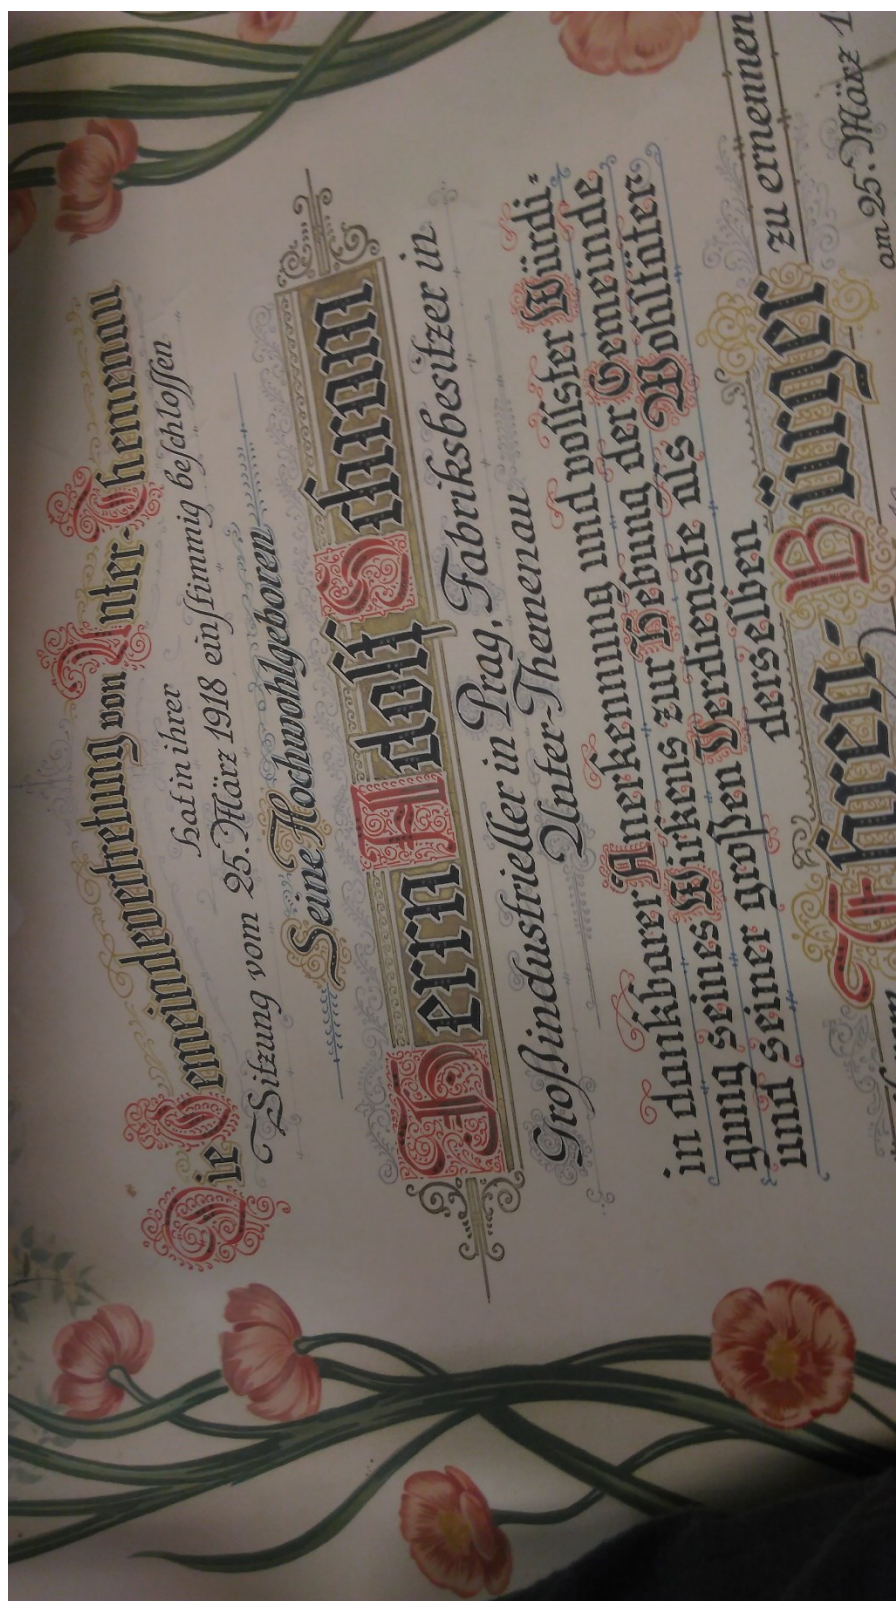 Die Gemeindevertretung von Unter-Themenau
hat in ihrer
Sitzung vom 25. März 1918 einstimmig beschlossen
Seine Hochwohlgeboren
Herrn Adolf Schram
Großindustrieller in Prag, Fabriksbesitzer in
Unter-Themenau
in dankbarer Anerkennung und vollster Würdi-
gung seines Wirkens zur Hebung der Gemeinde
und seiner großen Verdienste als Wohltäter
derselben
Ehren-Bürger zu ernennen
am 25. März